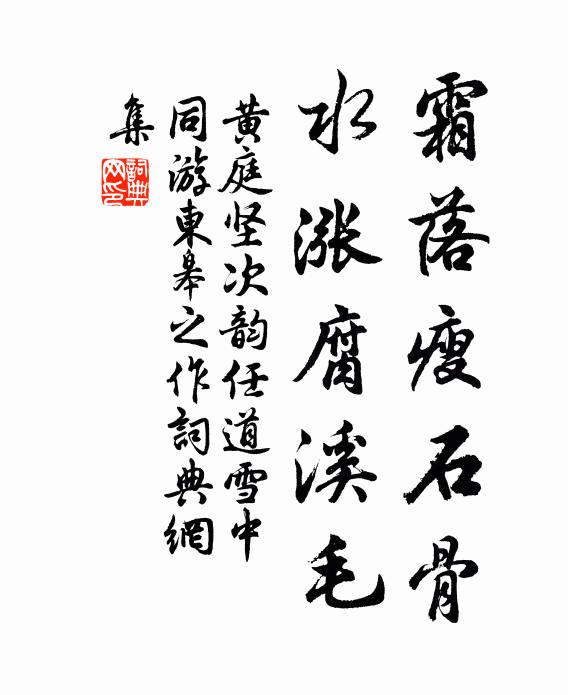 霜落瘦石骨
水漲腐溪毛
黄庭坚次韵任道雪中
同游東皋之作詞典網
集
詞典
网印